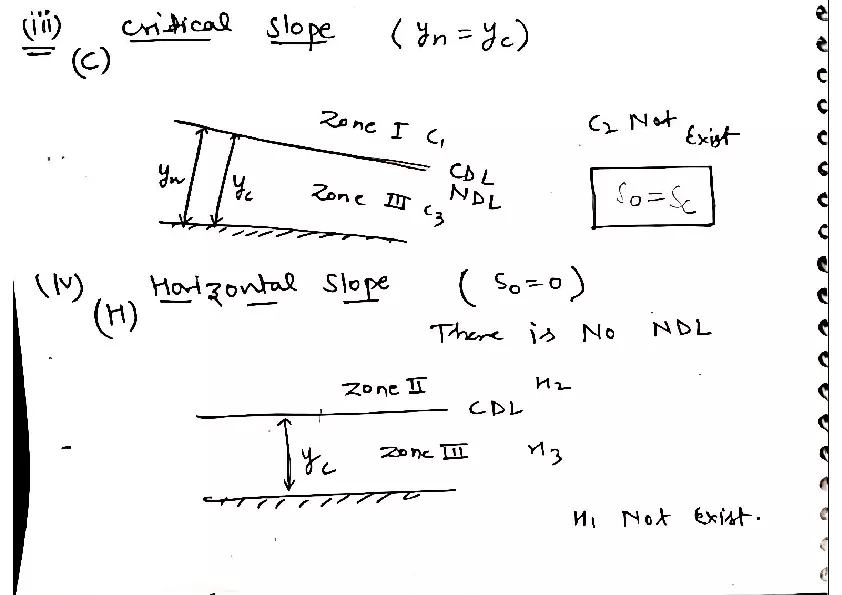 (iii) Critical Slope (yn = yc)
(C)
Zone I C1
C2 Not Exist
CDL
NDL
yn
yc
Zone III C3
So = Sc
(IV) Horizontal Slope (So = 0)
(H)
There is No NDL
Zone II H2
CDL
yc
Zone III H3
H1 Not Exist.